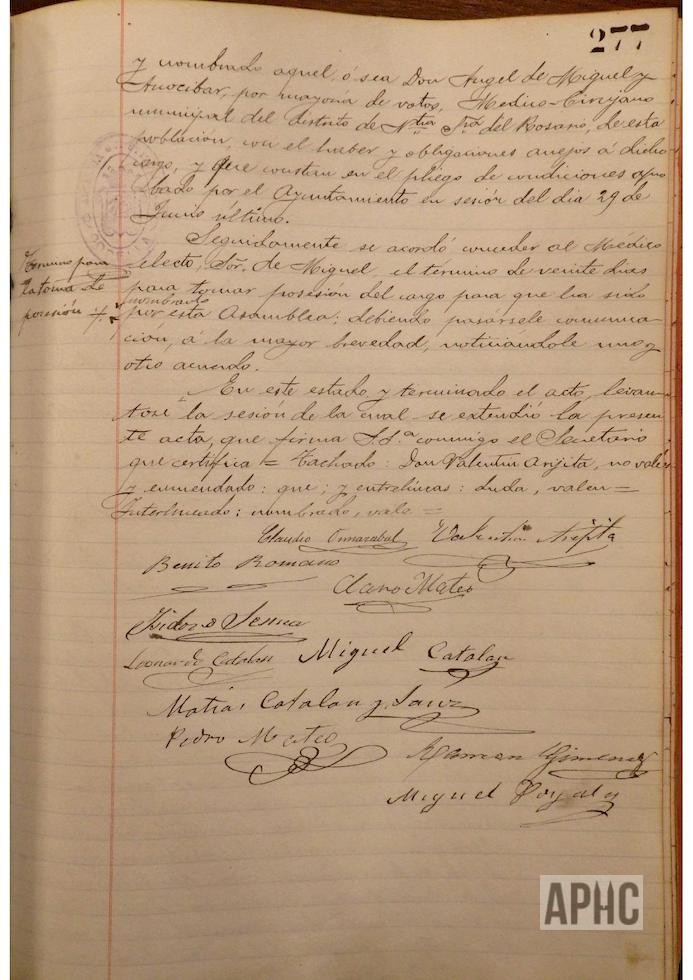 277
y nombrado aquel, ó sea Don Angel de Miguel y
Anocibar, por mayoría de votos, Médico-Cirujano
municipal del distrito de Ntra Sra del Rosario, de esta
población, con el haber y obligaciones anejos á dicho
cargo, y que constan en el pliego de condiciones apro
bado por el Ayuntamiento en sesión del dia 29 de
Junio último.
Seguidamente se acordó conceder al Médico
Termino para
la toma de
posesión
electo, Sor. de Miguel, el término de veinte dias
para tomar posesión del cargo para que ha sido
nombrado
por esta Asamblea; debiendo pasársele comunica-
ción, á la mayor brevedad, noticiándole uno y
otro acuerdo.
En este estado y terminado el acto, levan
tose la sesión de la cual se extendió la presen
te acta, que firma S.Sª conmigo el Secretario
que certifica = Tachado: Don Valentin Arijita, no vale
y enmendado: que; y entrelineas: duda, valen =
Interlineado: nombrado, vale =
Claudio Valentin Arijita
Benito Romano
Claro Mateo
Isidoro Sesma
Leonardo Catalan Miguel Catalan
Matias Catalan y Sanz
Pedro Mateo
Ramon Gimenez
Miguel
APHC